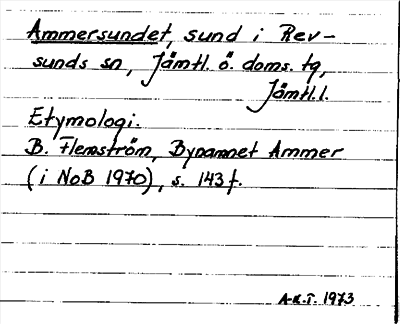 Ammersundet, sund i Rev-
sunds sn, Jämtl. ö. doms. tg,
Jämtl.l.
Etymologi.
B. Flemström, Bynamnet Ammer
(i NoB 1970), s. 143 f.
A-K.T. 1973